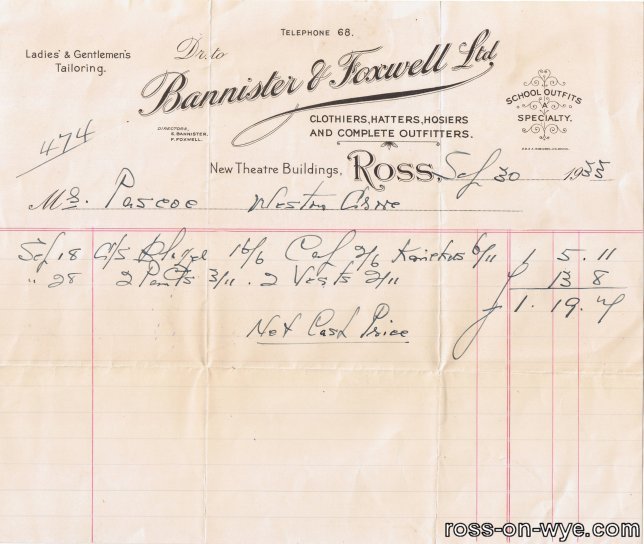 TELEPHONE 68.
Ladies' & Gentlemen's
Tailoring.
Dr. to
Bannister & Foxwell Ltd
SCHOOL OUTFITS
A
SPECIALTY.
CLOTHIERS, HATTERS, HOSIERS
AND COMPLETE OUTFITTERS.
DIRECTORS,
E. BANNISTER.
F. FOXWELL.
474
New Theatre Buildings, ROSS, Sep 30 1933
Mrs. Pascoe Weston
Sep 18 Blazer 16/6 Cap 2/6 6/11 1 5 . 11
" 28 2 Pants 3/11 . 2 Vests 2/11 13 8
1 . 19 . 7
Net Cash Price
ross-on-wye.com